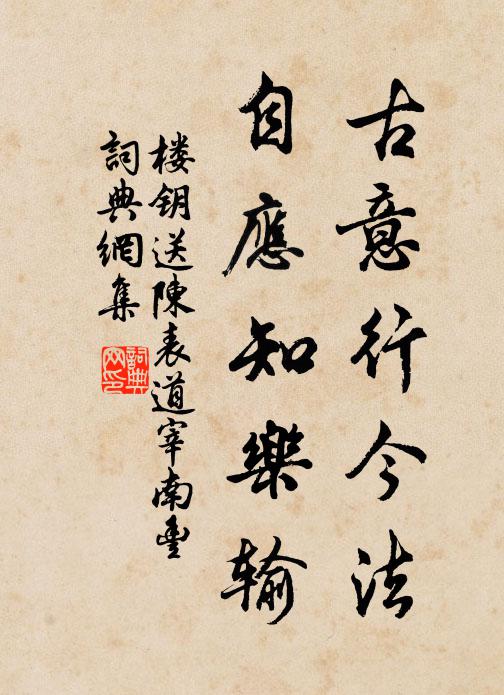 古意行今法
自應知樂输
楼钥送陳表道宰南豐
詞典網集
詞典网印